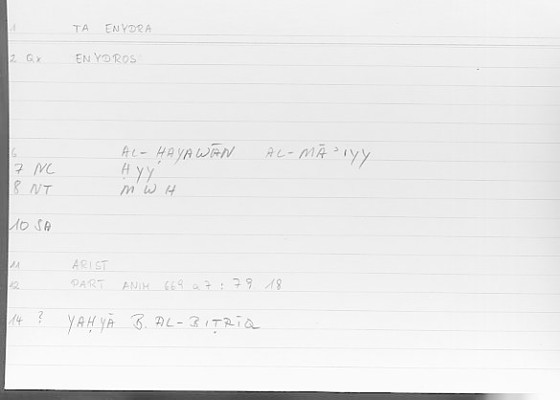 1 TA ENYDRA
2 Gr ENYDROS
6 AL-ḤAYAWĀN AL-MĀʾIYY
7 NC ḤYY
8 NT MWH
10 SA
11 ARIST
12 PART ANIM 669 a 7 : 79 18
14 ? YAḤYĀ B. AL-BIṬRĪQ